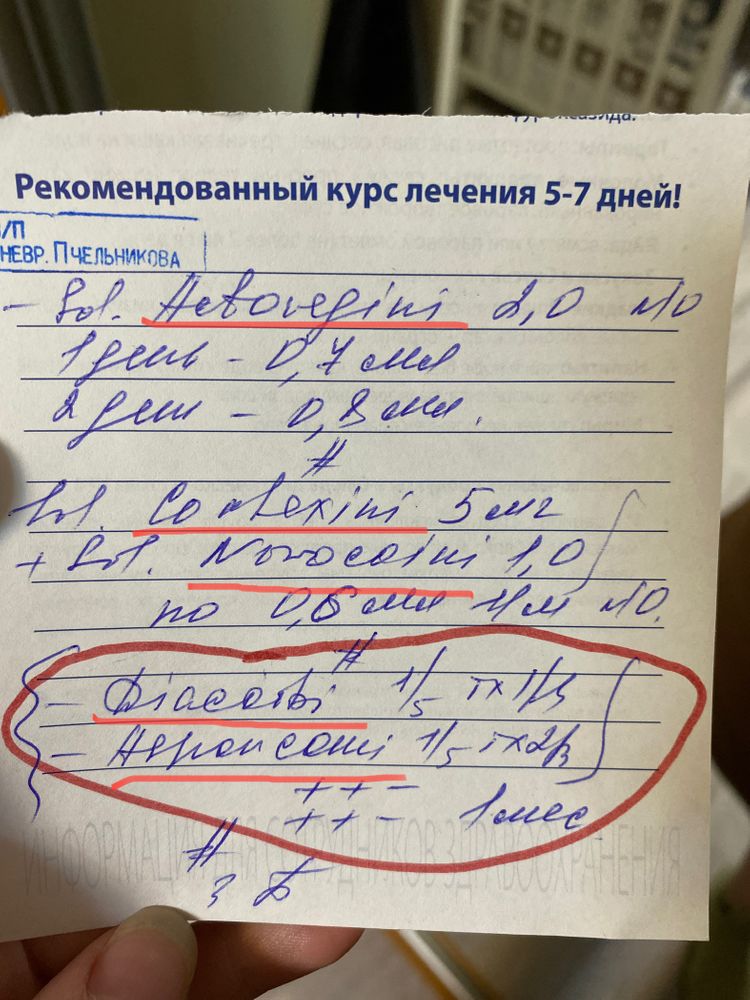 Рекомендованный курс лечения 5-7 дней!
В/П
НЕВР. ПЧЕЛЬНИКОВА
- Sol. Actovegini 2,0 №10
1 день - 0,7 мл
2 день - 0,8 мл.
#
Sol. Cortexini 5 мг
+ Sol. Novocaini 1,0
по 0,6 мл №10.
#
- Diacarbi 1/5 тх1/з
- Аspаrcami 1/5 тх2/з
+ + -
+ + - 1 мес
#
ИНФОРМАЦИЯ ДЛЯ СОТРУДНИКОВ ЗДРАВООХРАНЕНИЯ